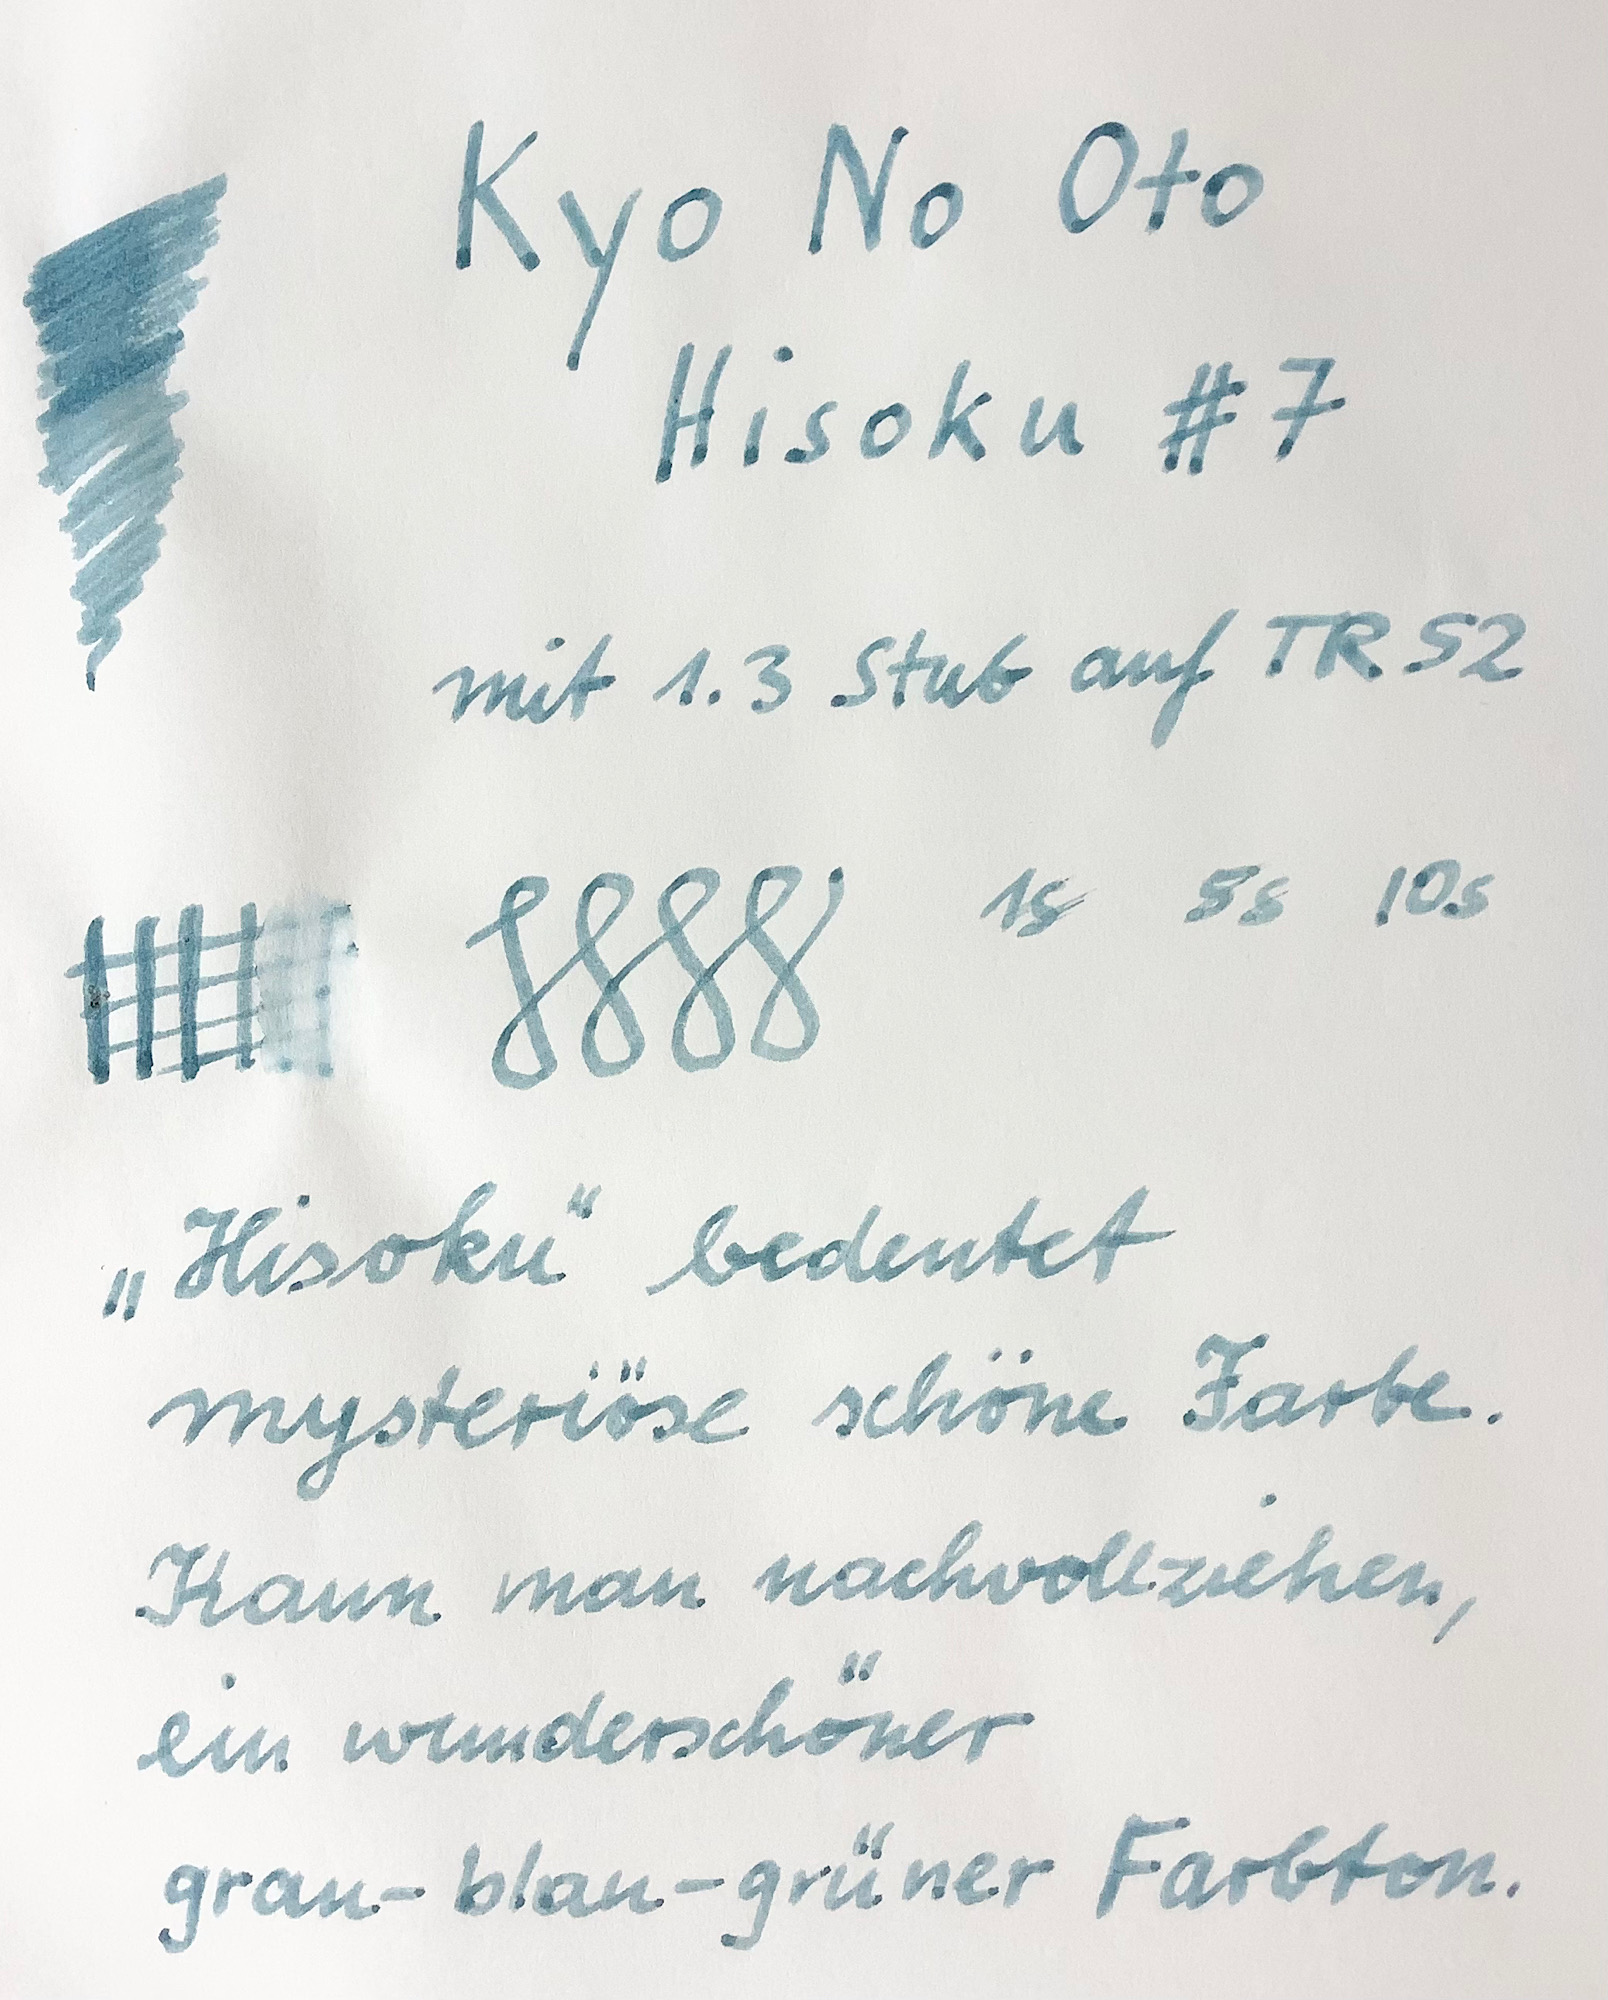 Kyo No Oto
Hisoku #7
mit 1.3 Stub auf TR 52
1s 5s 10s
„Hisoku“ bedeutet
mysteriöse schöne Farbe.
Kann man nachvollziehen,
ein wunderschöner
grau-blau-grüner Farbton.